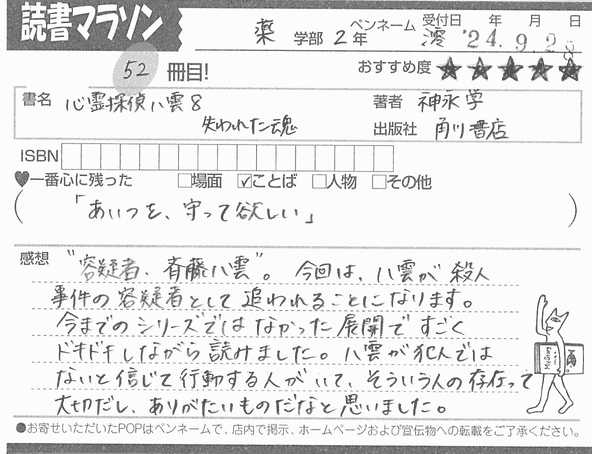 読書マラソン
薬 学部 2 年 ペンネーム 澪 受付日 年 月 日 '24. 9. 2
52 冊目! おすすめ度 ★★★★★
書名 心霊探偵八雲8 著者 神永学
失われた魂 出版社 角川書店
ISBN
♥一番心に残った □場面 ☑ことば □人物 □その他
(「あいつを、守って欲しい」)
感想 "容疑者・斉藤八雲"。今回は、八雲が殺人
事件の容疑者として追われることになります。
今までのシリーズではなかった展開ですごく
ドキドキしながら読みました。八雲が犯人では
ないと信じて行動する人がいて、そういう人の存在って
大切だし、ありがたいものだなと思いました。
●お寄せいただいたPOPはペンネームで、店内で掲示、ホームページおよび宣伝物への転載をご了承ください。